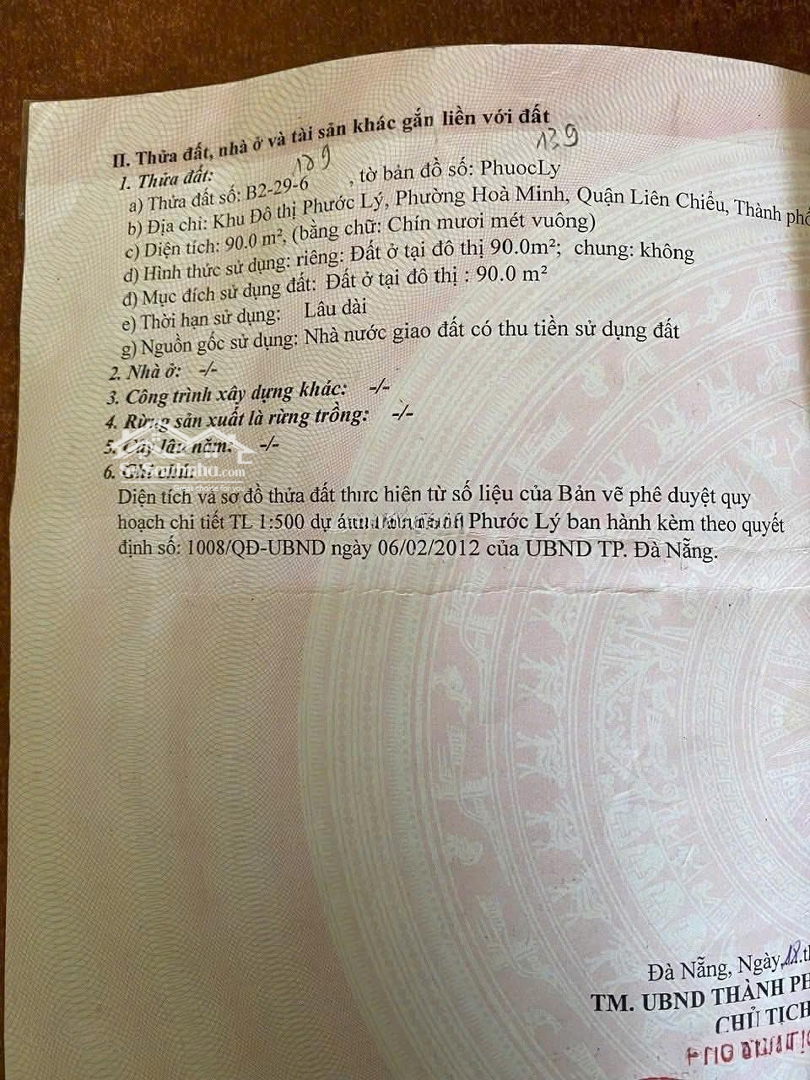 II. Thửa đất, nhà ở và tài sản khác gắn liền với đất
1. Thửa đất:
139
a) Thửa đất số: B2-29-6 , tờ bản đồ số: PhuocLy
b) Địa chỉ: Khu Đô thị Phước Lý, Phường Hoà Minh, Quận Liên Chiểu, Thành phố
c) Diện tích: 90.0 m², (bằng chữ: Chín mươi mét vuông)
d) Hình thức sử dụng: riêng: Đất ở tại đô thị 90.0m²; chung: không
đ) Mục đích sử dụng đất: Đất ở tại đô thị : 90.0 m²
e) Thời hạn sử dụng: Lâu dài
g) Nguồn gốc sử dụng: Nhà nước giao đất có thu tiền sử dụng đất
2. Nhà ở: -/-
3. Công trình xây dựng khác: -/-
4. Rừng sản xuất là rừng trồng: -/-
5. Cây lâu năm: -/-
6. Ghi chú:
Diện tích và sơ đồ thửa đất thực hiện từ số liệu của Bản vẽ phê duyệt quy
hoạch chi tiết TL 1:500 dự án Phước Lý ban hành kèm theo quyết
định số: 1008/QĐ-UBND ngày 06/02/2012 của UBND TP. Đà Nẵng.
Đà Nẵng, Ngày 18
TM. UBND THÀNH PH
CHỦ TỊCH